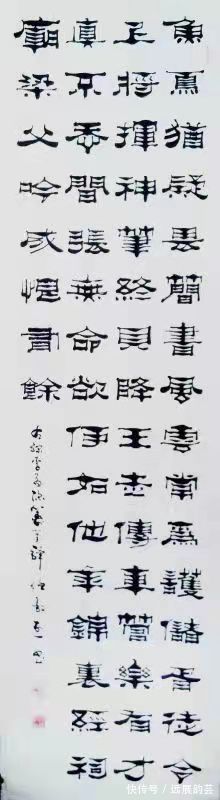 魚鳥猶疑畏簡書風雲常爲護儲胥徒令
上將揮神筆終見降王走傳車管樂有才
真不忝關張無命欲何如他年錦裏經祠
廟梁父吟成恨有餘
右錄李商隱籌筆驛
快传号 / 远展韵芸